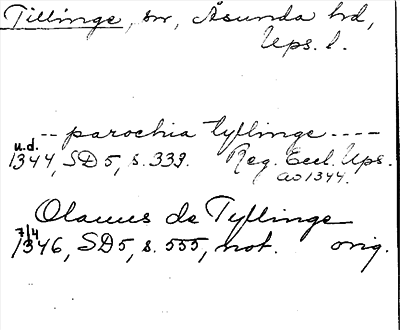 Tillinge, sn, Åsunda hd,
Ups. l.
-- parochia tyllinge ----
u.d.
1344, SD5, s. 339. Reg. Eccl. Ups.
ao 1344.
Olauus de Tyllinge
7/4
1346, SD5, s. 555, not. orig.